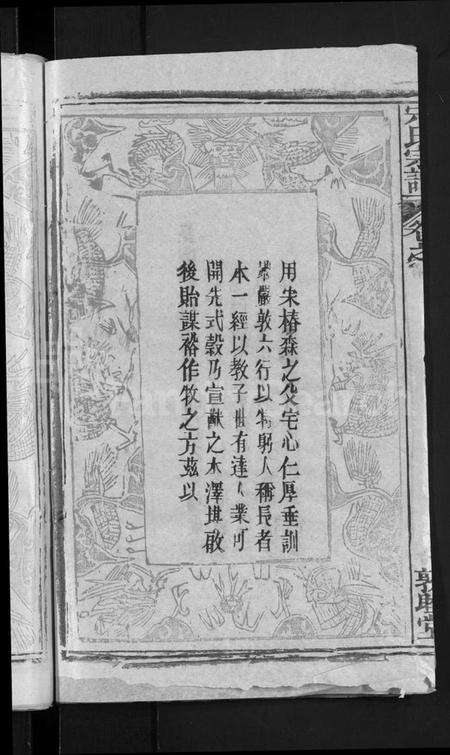 用宋椿森之父宅心仁厚垂訓
嚴敦六行以褆躬人稱長者
本一經以教子世有達人業可
開先式穀乃宣猷之本澤堪啟
後貽謀裕作牧之方茲以
宋氏宗譜